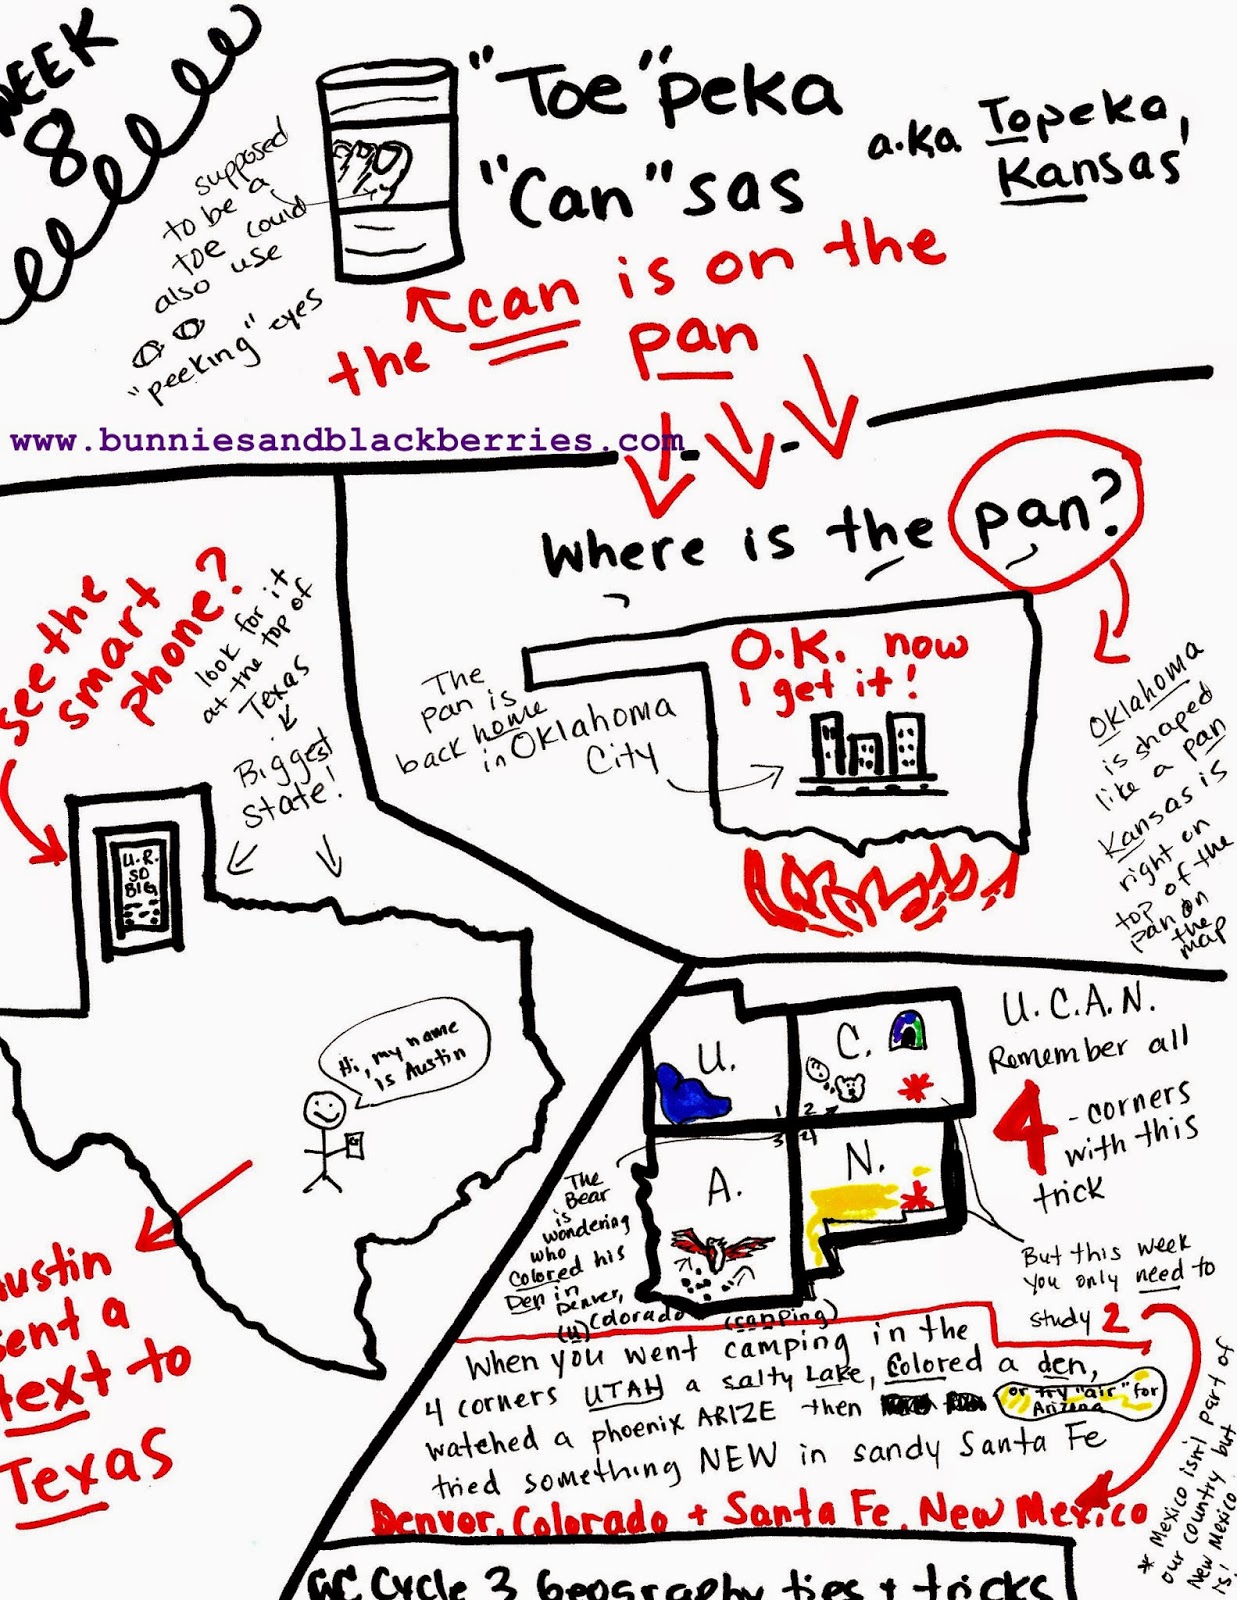 WEEK
8
supposed
to be a
toe could
also use
"peeking" eyes
"Toe"peka
"Can"sas
a.ka Topeka,
Kansas
the can is on the
pan
www.bunniesandblackberries.com
Where is the pan?
O.K. now
I get it!
The
pan is
back home
in Oklahoma
City
Oklahoma
is shaped
like a pan
Kansas is
right on
top of the
pan on
the
map
see the
smart
phone?
look for it
at the top of
Texas
Biggest
State!
U.R.
SO
BIG
Hi, my name
is Austin
Austin
sent a
text to
Texas
U.
C.
A.
N.
1 2
3 4
U.C.A.N.
Remember all
4-corners
with this
trick
The
Bear
is
wondering
who
colored his
Den in
Denver,
Colorado
But this week
you only need to
study 2
(u) (camping)
When you went camping in the
4 corners UTAH a salty Lake, Colored a den,
watched a phoenix ARIZE then
or try "air" for
Arizona
tried something NEW in sandy Santa Fe
Denver, Colorado + Santa Fe, New Mexico
* Mexico isn't part of
our country but
New Mexico
is!
CC Cycle 3 Geography ties + tricks